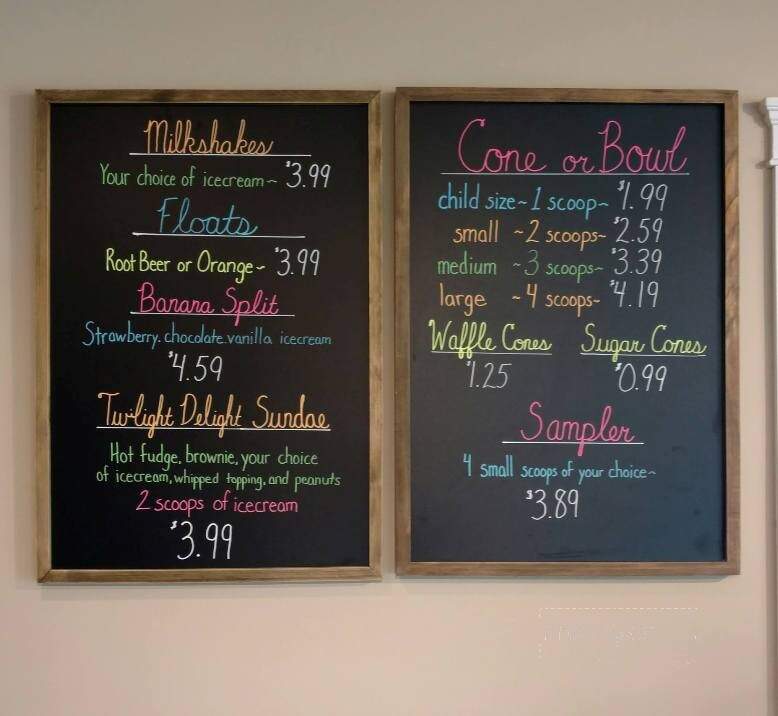 Milkshakes
Your choice of icecream~ $3.99
Floats
Root Beer or Orange~ $3.99
Banana Split
Strawberry, chocolate, vanilla icecream
$4.59
Twilight Delight Sundae
Hot fudge, brownie, your choice
of icecream, whipped topping, and peanuts
2 scoops of icecream
$3.99
Cone or Bowl
child size~1 scoop~ $1.99
small ~2 scoops~ $2.59
medium ~3 scoops~ $3.39
large ~4 scoops~ $4.19
Waffle Cones Sugar Cones
$1.25 $0.99
Sampler
4 small scoops of your choice~
$3.89